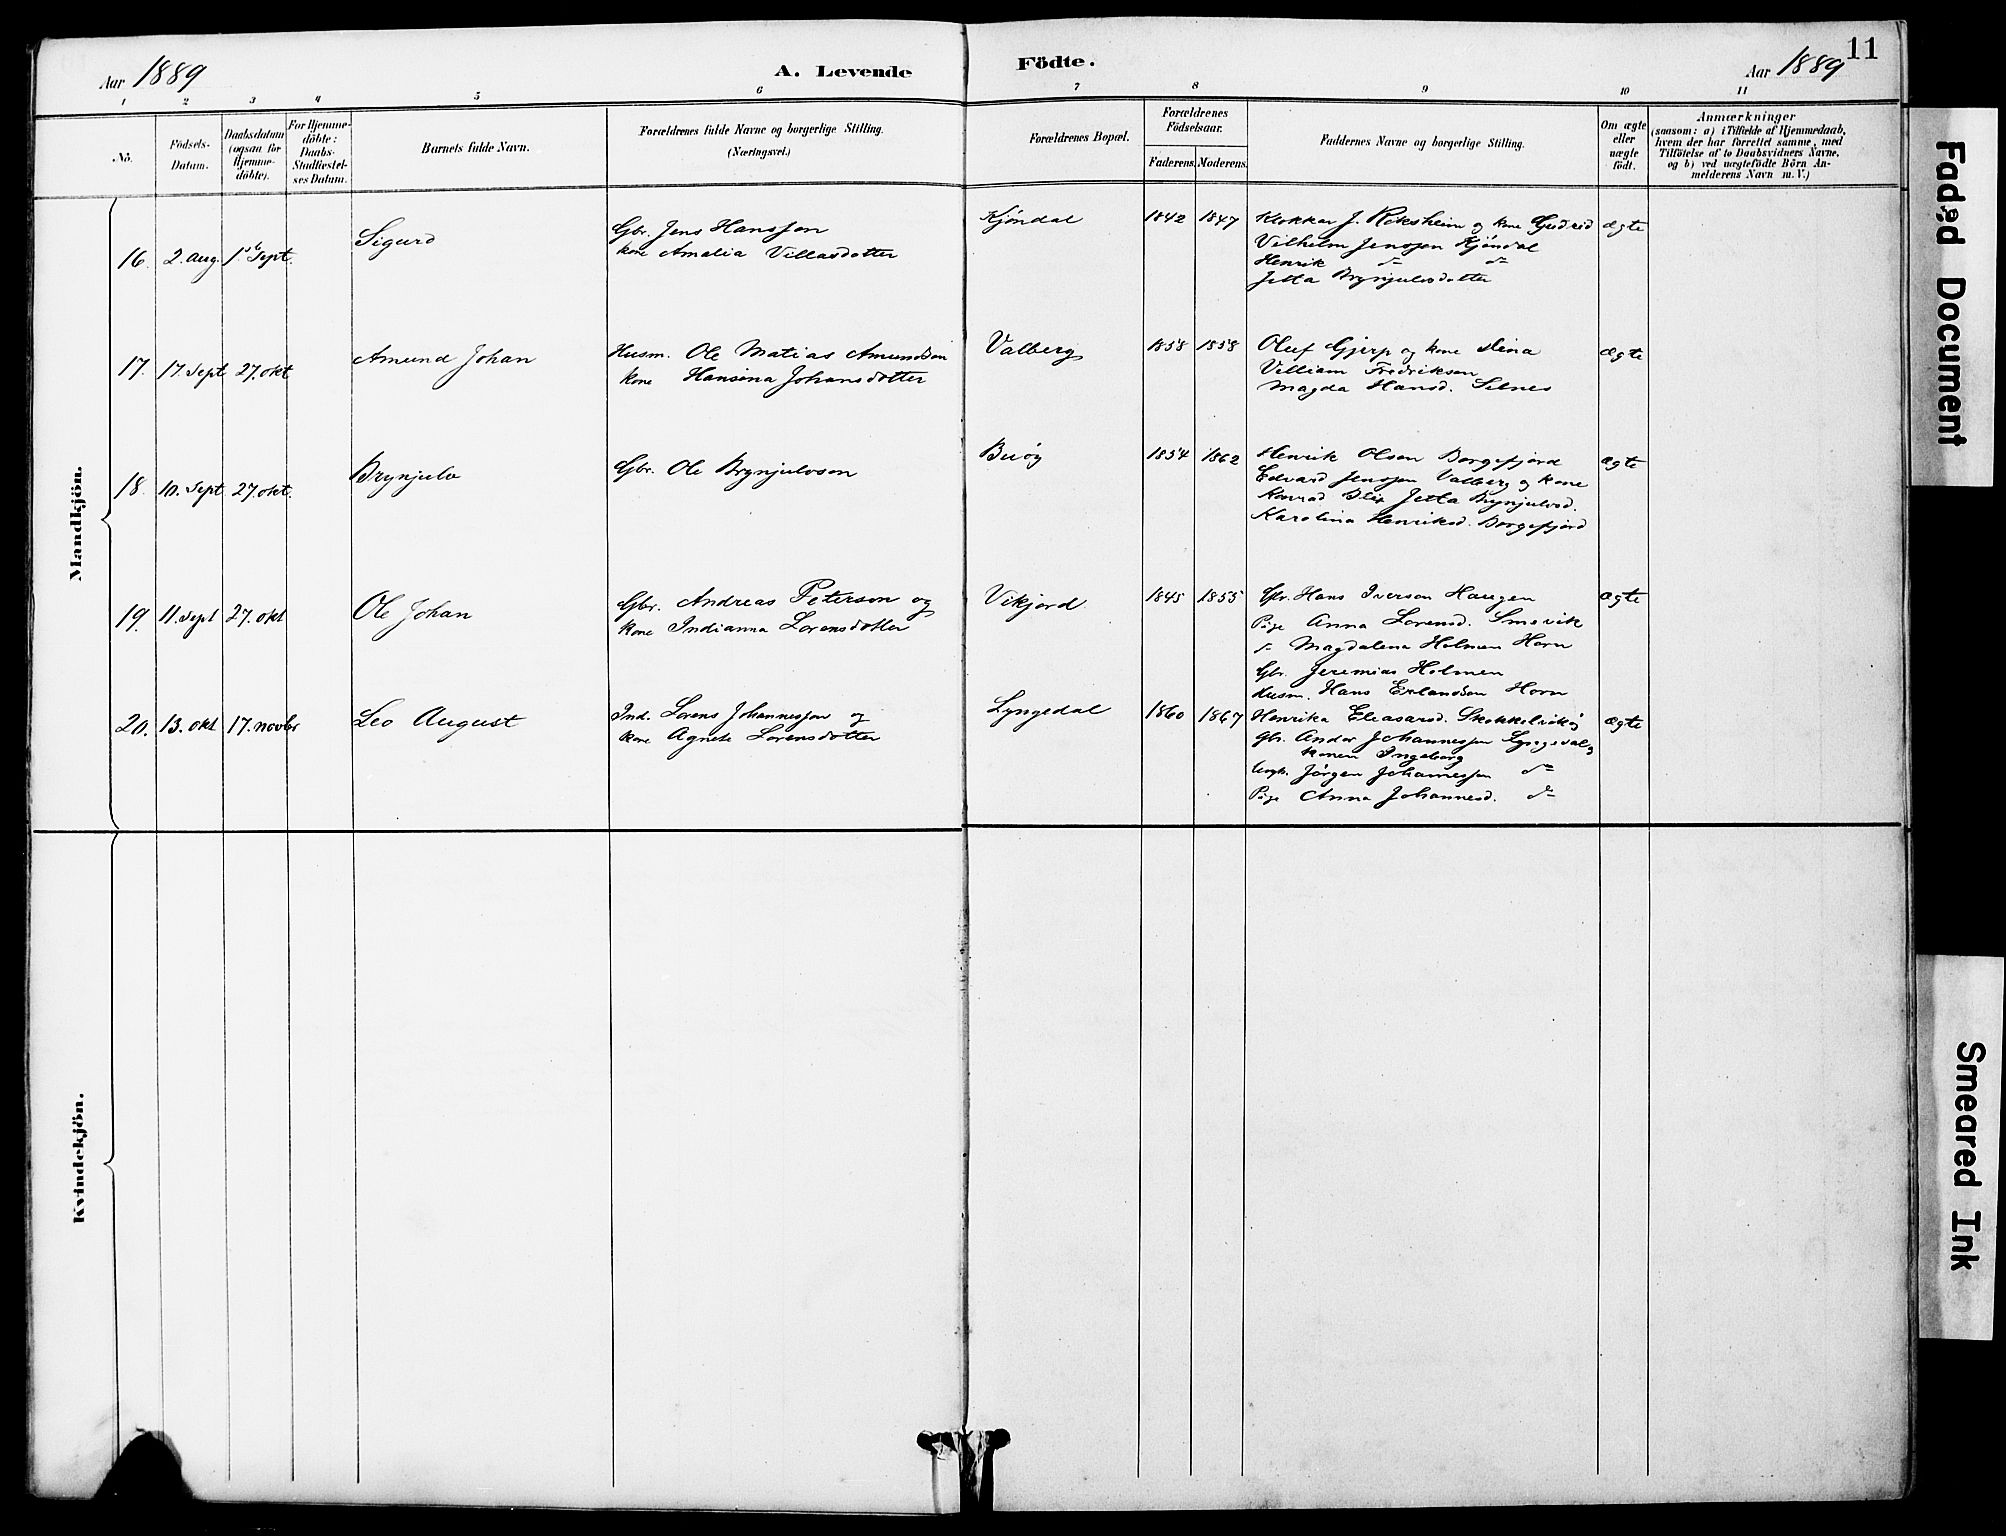 11
Aar 1889
A. Levende Födte.
Aar 1889
1 2 3 4 5 6 7 8 9 10 11
No.
Födsels-Datum.
Daabsdatum (ogsaa for Hjemme-döbte).
For Hjemme-döbte: Daabs-Stadfæstel-ses Datum.
Barnets fulde Navn.
Forældrenes fulde Navne og borgerlige Stilling.
(Næringsvei.)
Forældrenes Bopæl.
Forældrenes Födselsaar.
Faderens. Moderens.
Faddernes Navne og borgerlige Stilling.
Om ægte eller uægte födt.
Anmærkninger
(saasom: a) i Tilfælde af Hjemmedaab,
hvem der har forrettet samme, med
Tilföielse af to Daabsvidners Navne,
og b) ved uægtefödte Börn An-
melderens Navn m. V.)
Mandkjön.
16. 2. aug. 1st Sept. Sigurd
Gbr. Jens Hanssen
kone Amalia Villasdatter
Kjöndal 1842 1847
Klokkar J. Reksheim og kone Gudrid
Vilhelm Jenssen Kjöndal
Henrik
Jetta Brynjulvsdatter
ægte
17. 17. Sept 27. okt Amund Johan
Husm. Ole Matias Amundson
kone Hansina Johansdatter
Valberg 1858 1858
Oluf Gjerp og kone Stina
Villiam Fredriksen
Magda Hansd. Selnes
ægte
18. 10. Sept 27. okt. Brynjulv
Gbr. Ole Brynjulvson
Buöy 1854 1862
Henrik Olsen Borgefjord
Edvard Jenssen Valberg og kone
Konrad Blix Jetta Brynjulvsd.
Karolina Henriksd. Borgefjord
ægte
19. 11. Sept 27. okt Ole Johan
Gbr. Andreas Peterson og
kone Indianna Lorensdatter
Vikjord 1845 1855
Gbr. Hans Iverson Haugen
Pige Anna Lorensd. Smevik
Magdalena Holmen Horn
Gbr. Jeremias Holmen
Husm. Hans Erlandsen Horn
ægte
20. 13. okt 17. novbr Leo August
Ind. Lorens Johannessen og
kone Agnete Lorensdatter
Lyngedal 1860 1867
Henrika Eleasarsd.
Gbr. Andor Johannessen Lyngedal og
konen Ingeborg
Ungk. Jörgen Johannessen
Pige Anna Johannesd.
ægte
Kvindekjön.
Faded Document
Smeared Ink